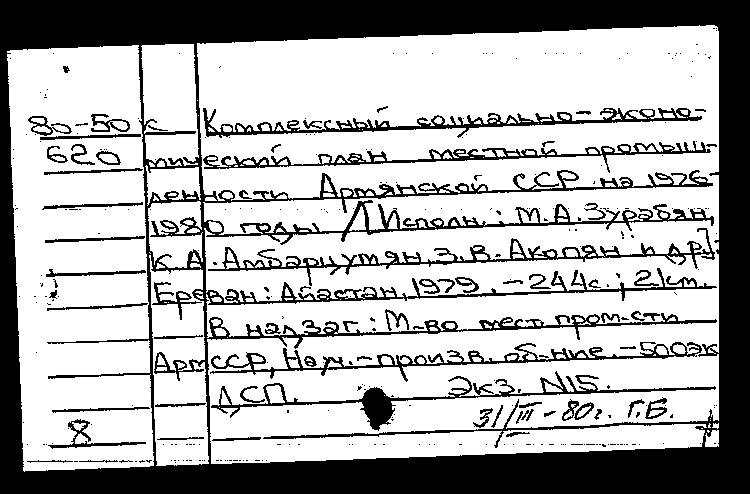 80-50 к Комплексный социально-эконо-
620 мический план местной промыш-
ленности Армянской ССР на 1976-
1980 годы /[Исполн.: М.А.Зурабян,
К.А.Амбарцумян, З.В.Акопян и др.].
Ереван: Айастан, 1979. -244с.; 21см.
В надзаг.: М-во мест. пром-сти
АрмССР, Науч.-произв. об-ние. -500эк
ДСП. Экз. N15.
8 31/III-80г. Г.Б.